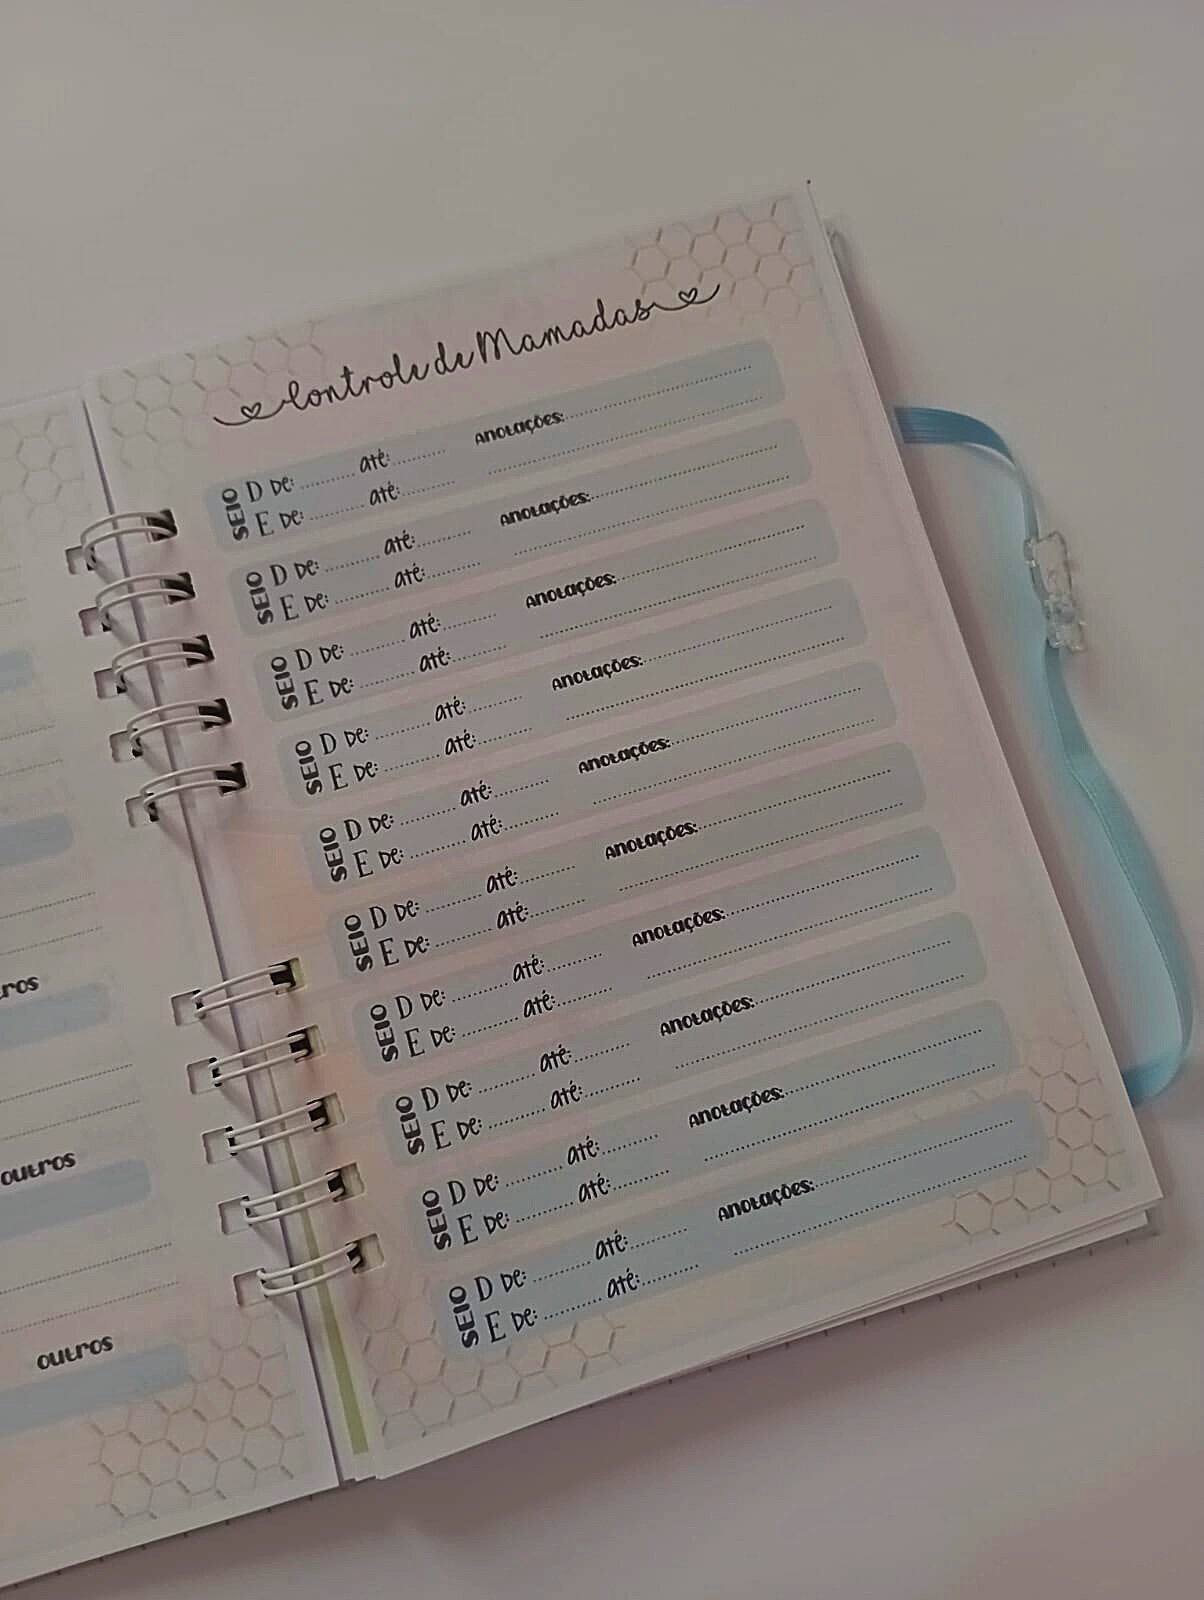 outros
outros
Controle de Mamadas
SEIO
D De: até: Anotações:
E De: até:
SEIO
D De: até: Anotações:
E De: até:
SEIO
D De: até: Anotações:
E De: até:
SEIO
D De: até: Anotações:
E De: até:
SEIO
D De: até: Anotações:
E De: até:
SEIO
D De: até: Anotações:
E De: até:
SEIO
D De: até: Anotações:
E De: até:
SEIO
D De: até: Anotações:
E De: até:
SEIO
D De: até: Anotações:
E De: até:
SEIO
D De: até: Anotações:
E De: até: